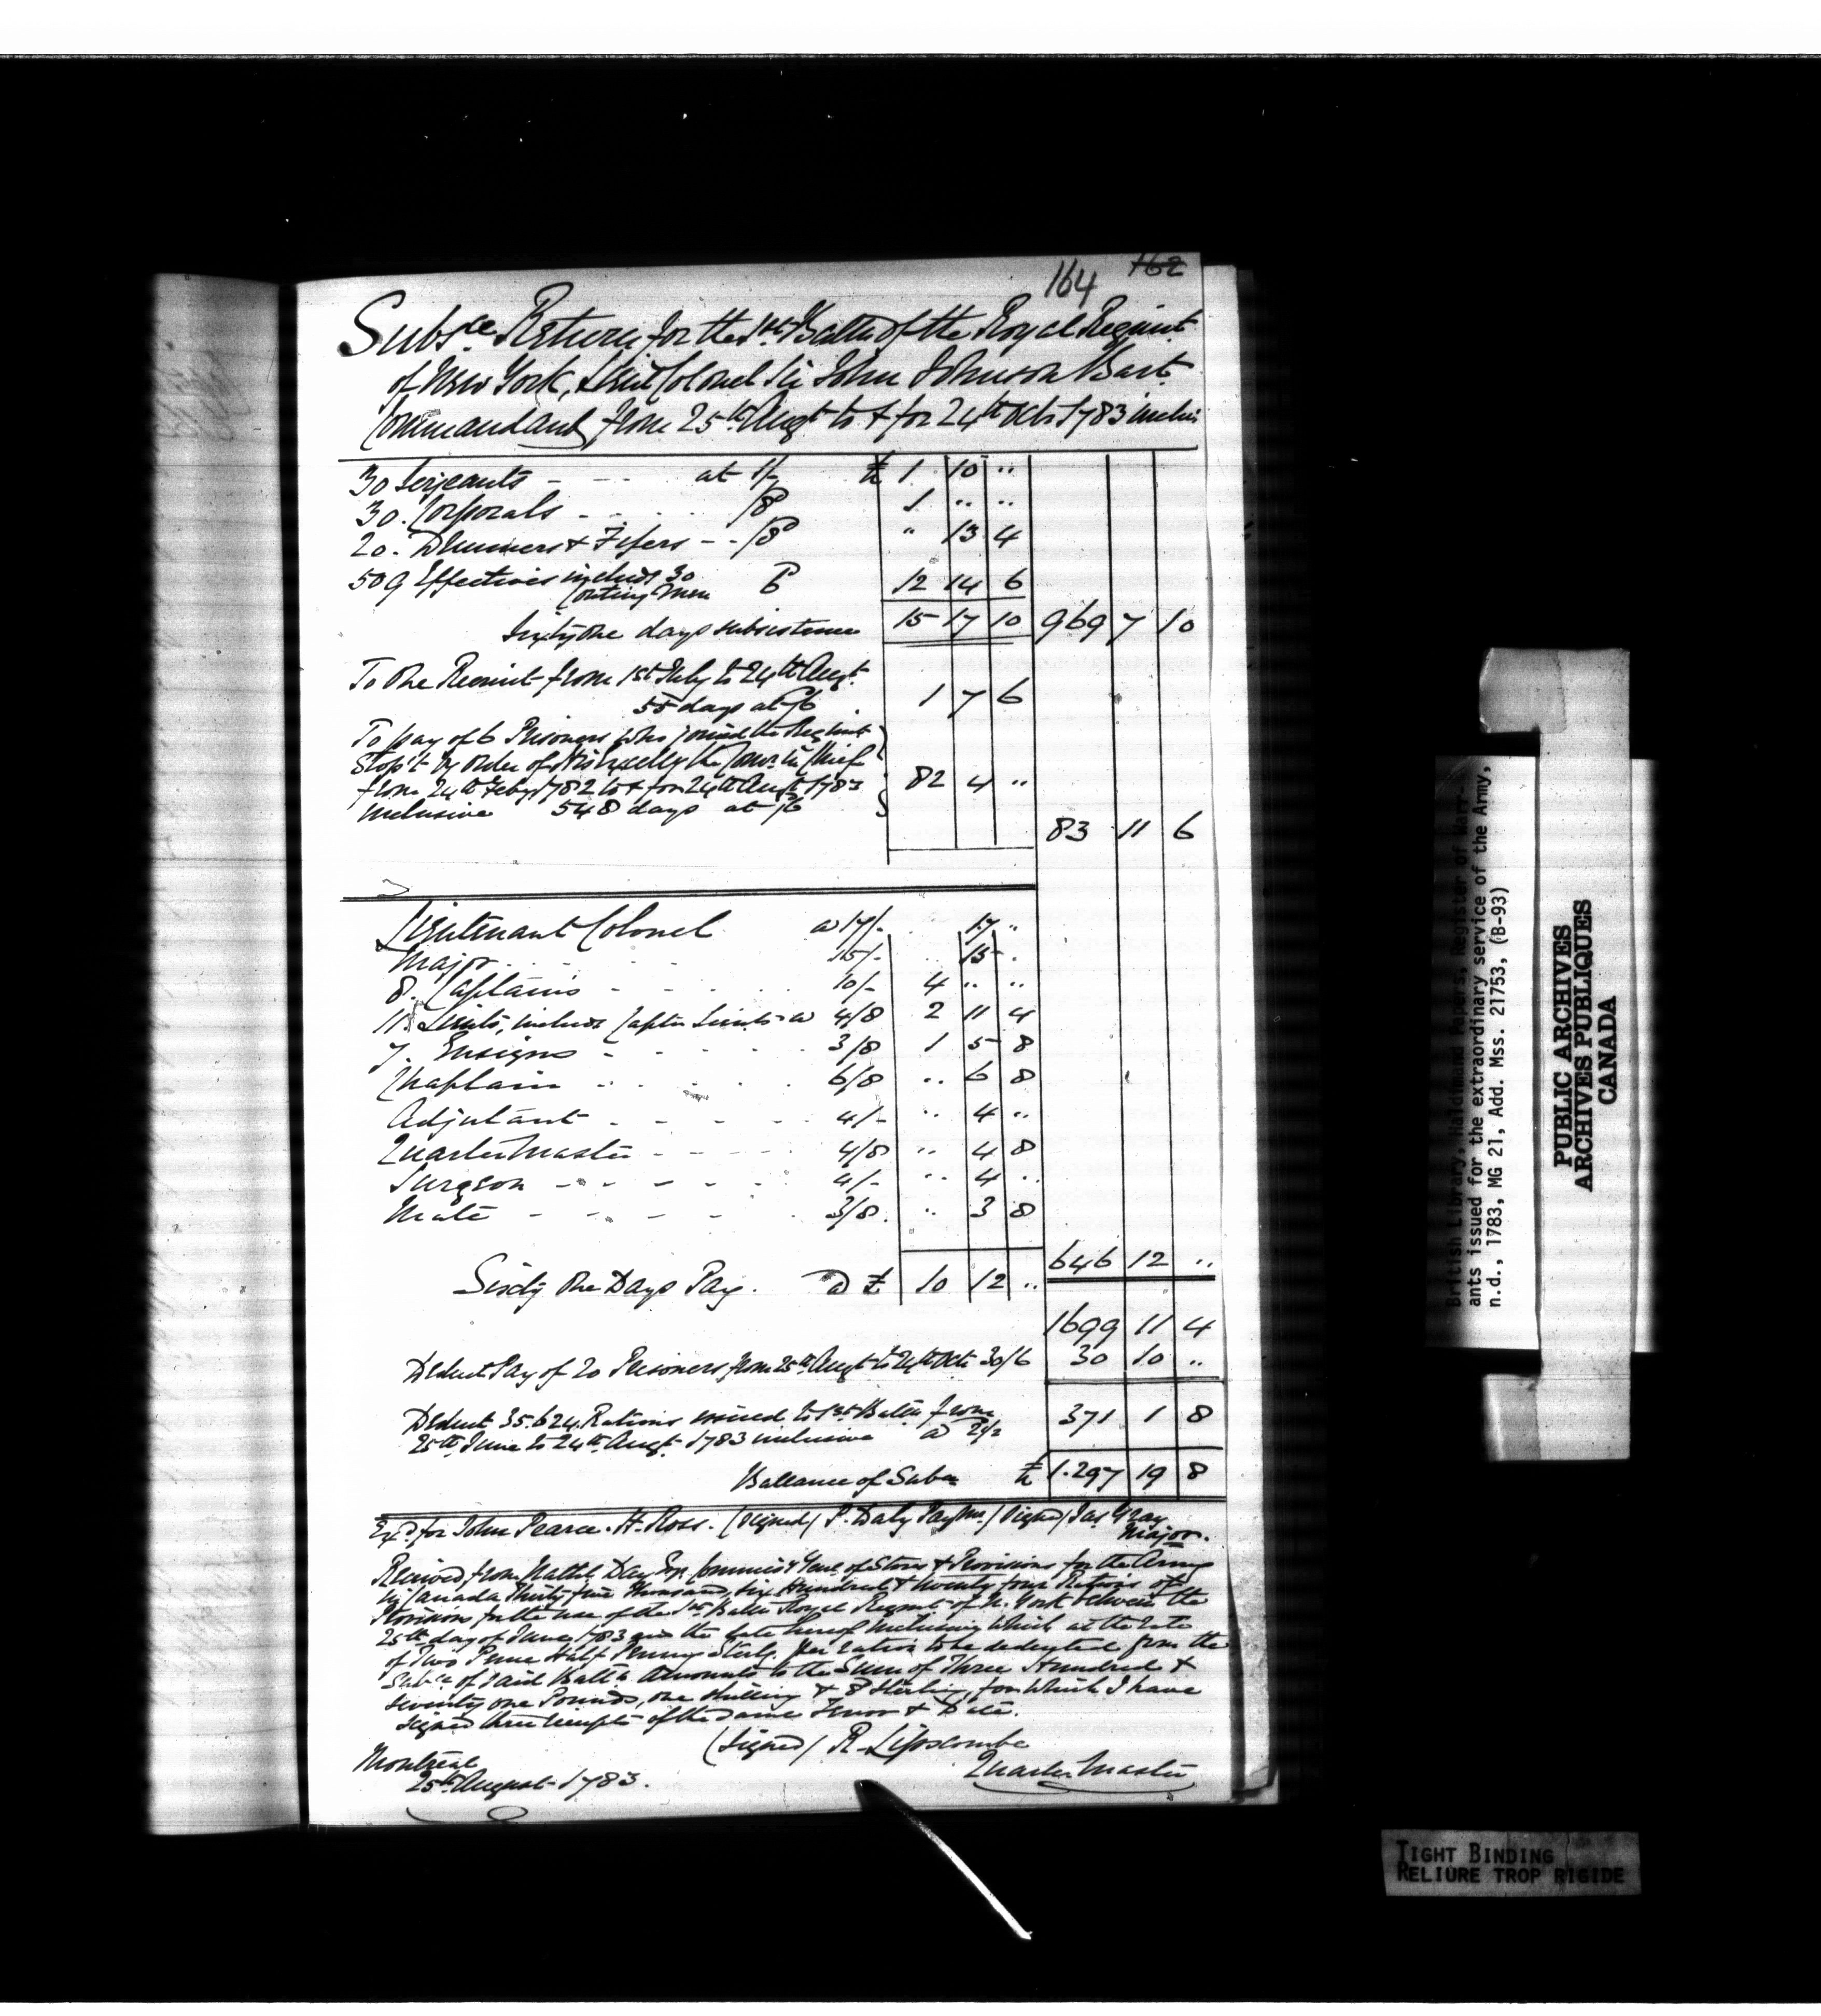 164 162
Subsce Return for the 1st Battn of the Royal Regimt
of New York, Lieut Colonel Sir John Johnson Bart.
Commandant from 25th Augt to & for 24th Octr 1783 inclu:
30 Serjeants - - - at 1/- £ 1 10 ..
30. Corporals - - - - /8 1 .. ..
20. Drummers & Fifers - - /8 " 13 4
509 Effectives includg 30
Contingt Men 6 12 14 6
Sixty one days subsistence 15 17 10 969 7 10
To One Recruit from 1st July to 24th Augt.
55 days at /6 1 7 6
To pay of 6 Prisoners who joined the Regimt
Stop't by order of His Excelly the Comr. in Chief
from 24th Feby 1782 to & for 24th Augt 1783
inclusive 548 days at /6 82 4 ..
83 11 6
Lieutenant Colonel a 17/- .. 17 ..
Major - - - 15/- .. 15 ..
8. Captains - - - - 10/- 4 .. ..
11. Lieuts, includg Captn Lieuts a 4/8 2 11 4
7. Ensigns - - - - 3/8 1 5 8
Chaplain - - - - 6/8 .. 6 8
Adjutant - - - - 4/- .. 4 ..
Quarter Master - - - - 4/8 .. 4 8
Surgeon - - - - - 4/- .. 4 ..
Mate - - - - - 3/8. .. 3 8
646 12 ..
Sixty One Days Pay. a £ 10 12 ..
1699 11 4
Deduct Pay of 20 Prisoners from 25th Augt to 24th Octr 30/6 30 10 ..
Deduct 35.624 Rations issued to 1st Battn from 371 1 8
25th June to 24th Augt. 1783 inclusive a 2½
Ballance of Subce £ 1.297 19 8
Exd. for John Pearce. H. Ross. (signed) P. Daly Paymr. (signed) Jas Gray
Major.
Received from Nathl Day Esqr Commissy Genl of Stores & Provisions for the Army
in Canada Thirty five thousand, six Hundred & twenty four Rations of
Provisions for the use of the 1st Battn Royal Regimt of N. York between the
25th day of June 1783 and the date hereof inclusive which at the rate
of Two Pence Half Penny Sterlg. per ration to be deducted from the
Subce of said Battn amounts to the Sum of Three Hundred &
Seventy one Pounds, one shilling & 8 Sterling, for which I have
signed three receipts of the same Tenor & Date.
(signed) R. Lipscombe
Quarter Master
Montreal
25th August 1783.
British Library, Haldimand Papers, Register of Warr-
ants issued for the extraordinary service of the Army,
n.d., 1783, MG 21, Add. Mss. 21753, (B-93)
PUBLIC ARCHIVES
ARCHIVES PUBLIQUES
CANADA
TIGHT BINDING
RELIURE TROP RIGIDE